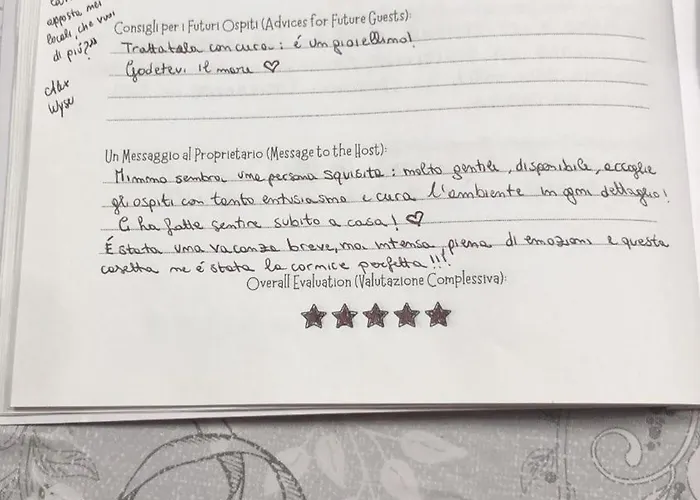 apposta nei
locali, che vuoi
di più?"
Wyse
Consigli per i Futuri Ospiti (Advices for Future Guests):
Trattatela con cura: é un gioiellino!
Godetevi il mare ♡
Un Messaggio al Proprietario (Message to the Host):
Mimmo sembra una persona squisita: molto gentile, disponibile, accoglie
gli ospiti con tanto entusiasmo e cura l'ambiente in ogni dettaglio!
Ci ha fatte sentire subito a casa! ♡
È stata una vacanza breve, ma intensa, piena di emozioni e questa
casetta ne é stata la cornice perfetta!!!
Overall Evaluation (Valutazione Complessiva):